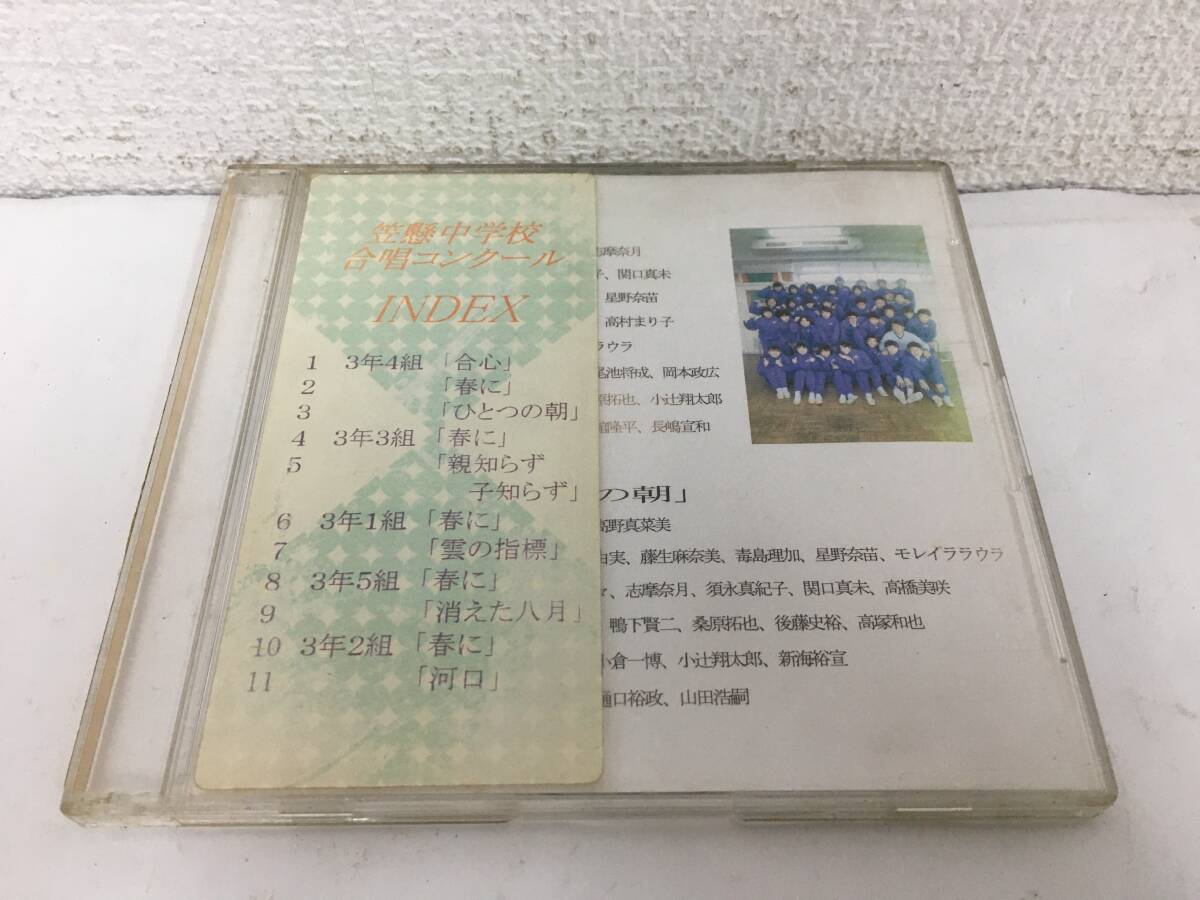 笠懸中学校
合唱コンクール
INDEX
1 3年4組「合心」
2 「春に」
3 「ひとつの朝」
4 3年3組「春に」
5 「親知らず
子知らず」
6 3年1組「春に」
7 「雲の指標」
8 3年5組「春に」
9 「消えた八月」
10 3年2組「春に」
11 「河口」
志摩奈月
子、関口真未
星野奈苗
高村まり子
ラウラ
尾池将成、岡本政広
原拓也、小辻翔太郎
隆平、長嶋宣和
の朝」
高野真菜美
由実、藤生麻奈美、毒島理加、星野奈苗、モレイララウラ
、志摩奈月、須永真紀子、関口真未、高橋美咲
鴨下賢二、桑原拓也、後藤史裕、高塚和也
小倉一博、小辻翔太郎、新海裕宣
樋口裕政、山田浩嗣